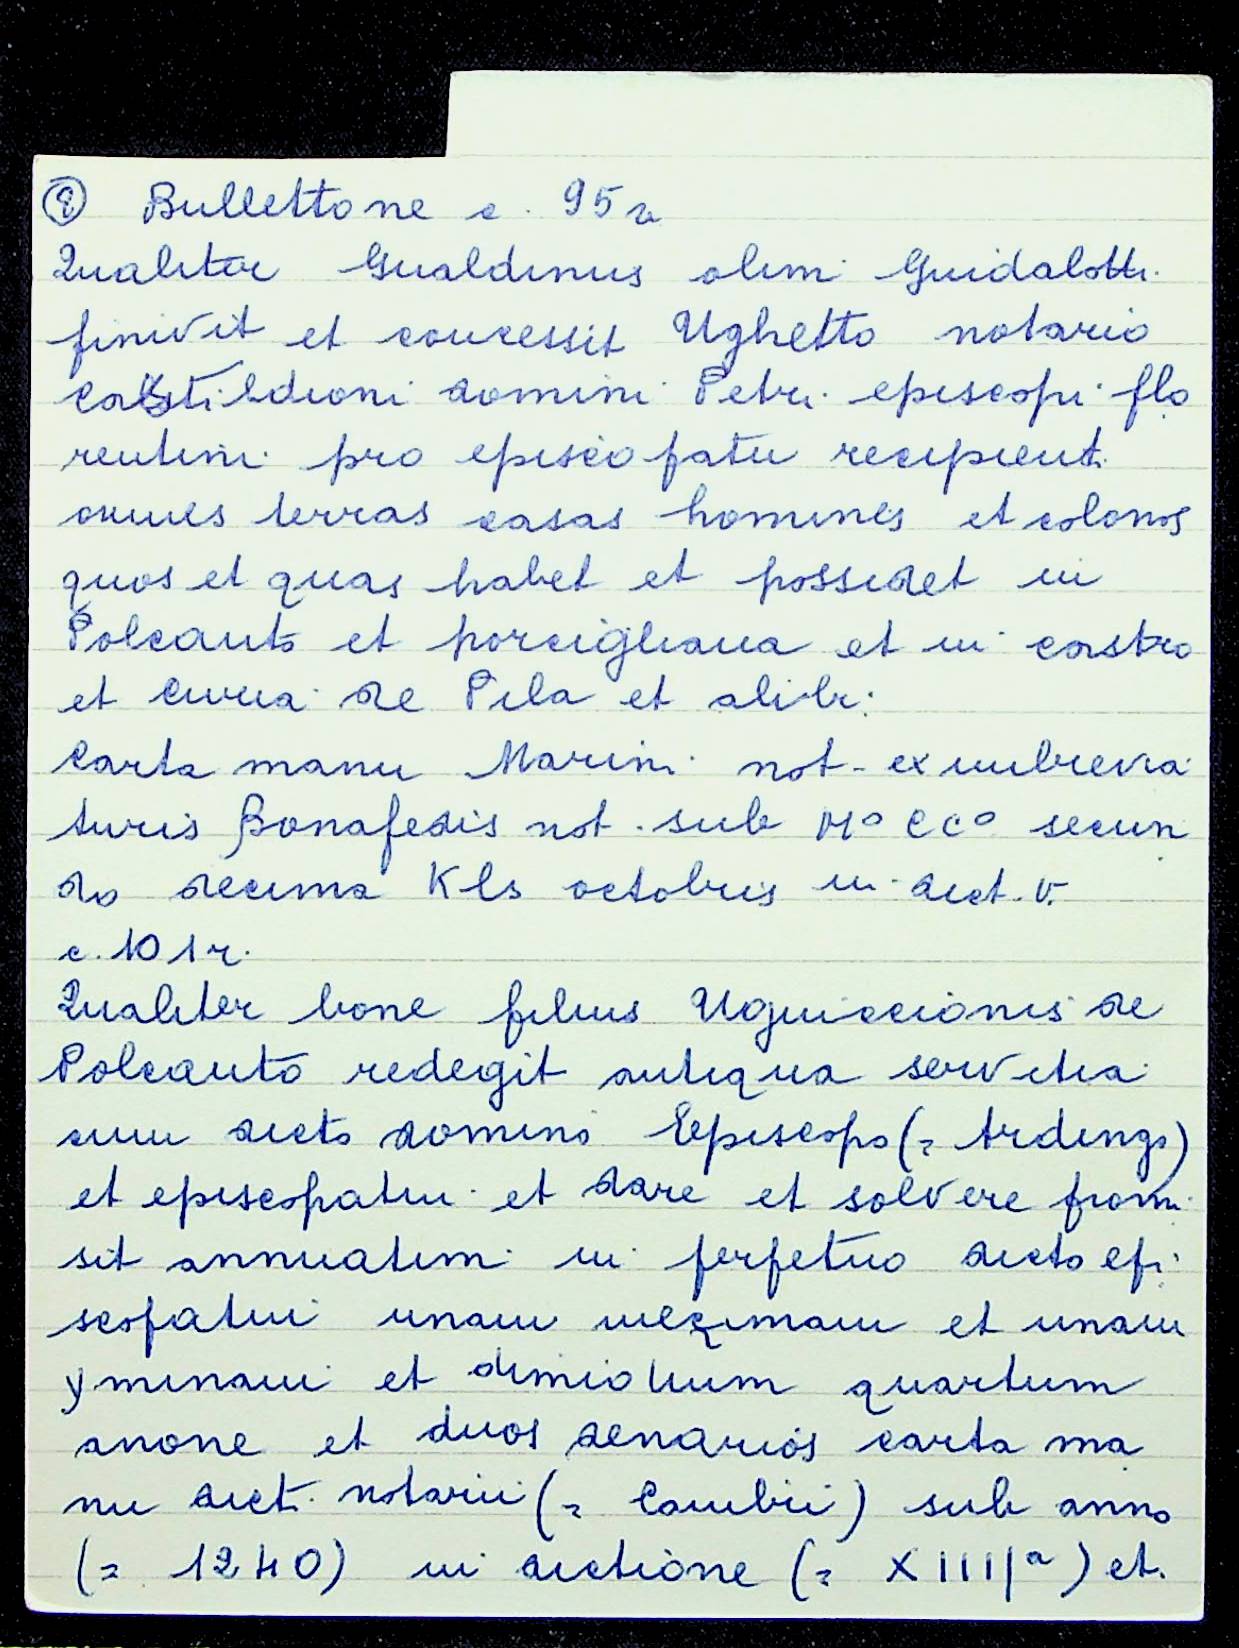 ⑧ Bullettone c. 95 r
Qualiter Gualdinus olim Guidalotti
finivit et concessit Ughetto notario
domini Petri episcopi flo
rentini pro episcopatu recipienti
omnes terras casas homines et colonos
quos et quas habet et possidet in
Polcanto et porcigliana et in castro
et curia de Pila et alibi:
Carta manu Marini not. ex imbrevia
turis Bonafedis not. sub M° CC° secun
do decima Kls octobris indict. V.
c. 101 r.
Qualiter bone filius Uguiccionis de
Polcanto redegit antiqua servitia
cum dicto domino Episcopo (= Ardingo)
et episcopatu et dare et solvere promi
sit annuatim in perpetuo dicto epi
scopatui unam mezimam et unam
yminam et dimidium quartum
anone et duos denarios carta ma
nu dicti notarii (= Cambii) sub anno
(= 1240) indictione (= XIIIIª) et